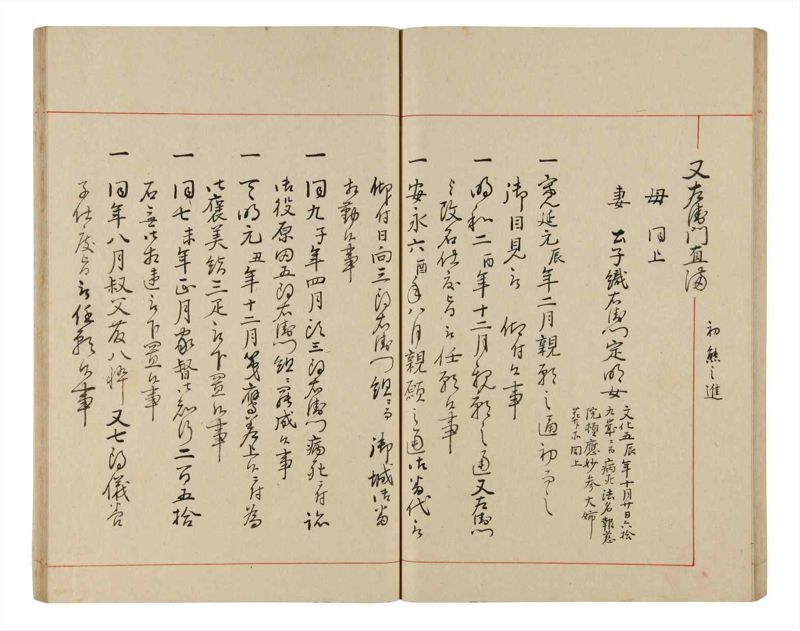 又左衛門直満
初 熊之進
母 同上
妻 安子織右衛門定明女
文化五辰年十月廿日六拾
九歳ニ而病死法名報慈
院恒應妙参大姉
葬所同上
一 寛延元辰年二月親願之通初而之
御目見被 仰付候事
一 明和二酉年十二月親願之通又左衛門
与改名仕度旨被任願候事
一 安永六酉年八月親願之通御番代被
仰付日向三郎右衛門組ニ而 御城御番
相勤候事
一 同九子年四月頭三郎右衛門病死ニ付跡
御役原田五郎右衛門組ニ罷成候事
一 天明元丑年十二月荒鷹差上候ニ付為
御褒美銀三疋被下置候事
一 同七未年正月家督御知行二百五拾
石無御相違被下置候事
一 同年八月叔父友八粋又七郎儀養
子仕度旨被任願候事